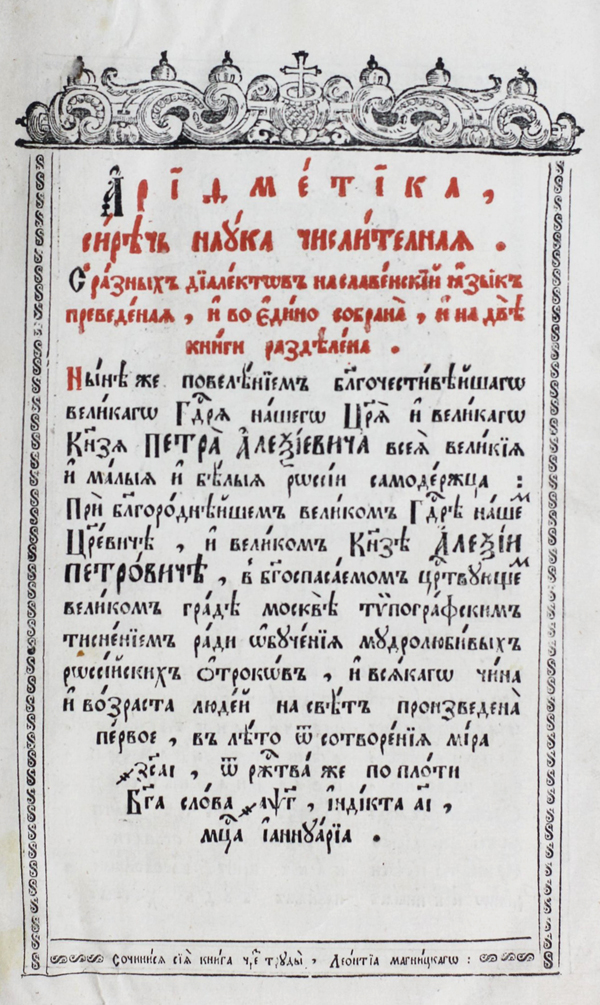 Арїѳме́тїка,
си́рѣчь наꙋ́ка числи́телнаѧ.
С̾ ра́зныхъ дїале́ктѡвъ на славе́нскїй ꙗ҆зы́къ
преведе́наѧ, и҆ во є҆ди́но собрана̀, и҆ на двѣ̀
кни́ги раздѣле́на.
Ны́нѣ же повелѣ́нїемъ бл҃гочести́вѣйшагѡ
вели́кагѡ Гдⷭ҇рѧ на́шегѡ Цр҃ѧ̀ и҆ вели́кагѡ
Кн҃зѧ ПЕТРА̀ А҆ЛЕѮІ́ЕВИЧА всеѧ̀ вели́кїѧ
и҆ ма́лыѧ и҆ бѣ́лыѧ рѡссі́и самоде́ржца :
Прѝ бл҃горо́днѣйшемъ вели́комъ Гдⷭ҇рѣ на́шеⷨ
Цр҃е́вичѣ, и҆ вели́комъ Кн҃зѣ А҆ЛЕѮІ́И
ПЕТРО́ВИЧѢ, в̾ бг҃оспаса́емомъ црⷭ҇твꙋющеⷨ
вели́комъ гра́дѣ москвѣ̀ тѷпогра́фскимъ
тисне́нїемъ ра́ди ѡ҆бꙋче́нїѧ мꙋдролюби́выхъ
рѡссі́йскихъ ѻ҆́трокѡвъ, и҆ всѧ́кагѡ чи́на
и҆ во́зраста люде́й на свѣ́тъ произведена̀
пе́рвое, въ лѣ́то ѿ сотворе́нїѧ мі́ра
҂зс҃аі, ѿ ржⷭ҇тва́ же по пло́ти
Бг҃а сло́ва ҂аѱ҃г, і҆нді́кта а҃і,
мцⷭ҇а і҆аннꙋа́рїа.
Сочини́сѧ сїѧ̀ кни́га чре́з трꙋды̀, Лео́нтїа магни́цкагѡ :